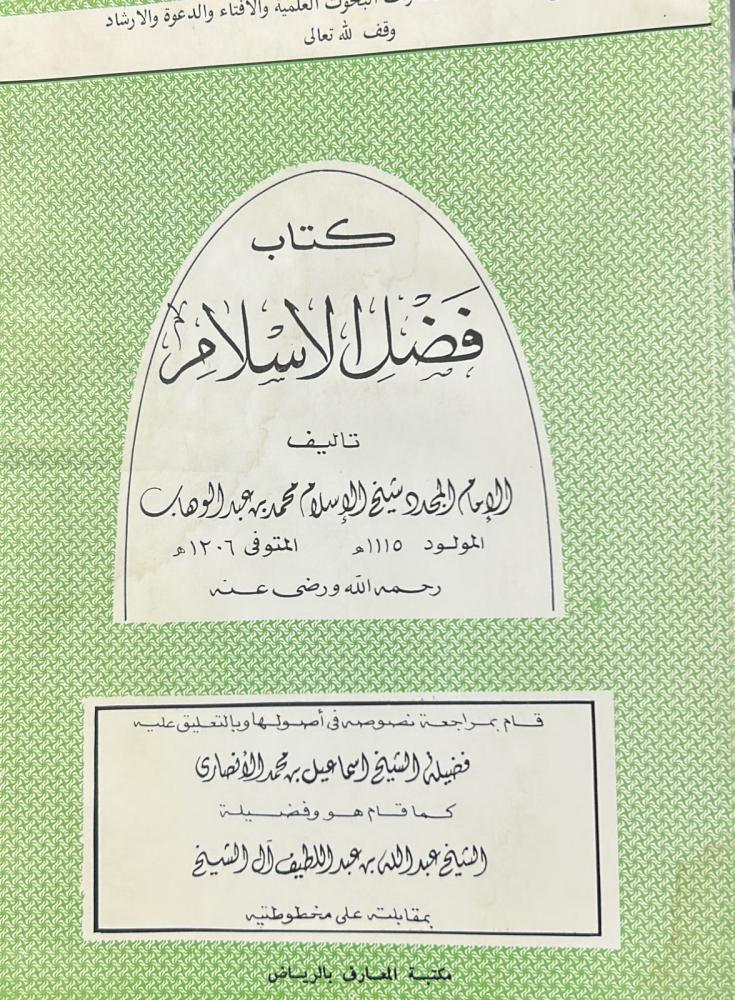 البحوث العلمية والافتاء والدعوة والارشاد
وقف لله تعالى
كتاب
فَضْلُ الاسْلام
تاليف
الإمام المجدد شيخ الإسلام محمد بن عبد الوهاب
المولود ١١١٥ه المتوفى ١٢٠٦ه
رحمه الله ورضى عنه
قام بمراجعة نصوصه فى أصولها وبالتعليق عليه
فضيلة الشيخ اسماعيل بن محمد الأنصارى
كما قام هو وفضيلة
الشيخ عبد الله بن عبد اللطيف آل الشيخ
بمقابلته على مخطوطتيه
مكتبة المعارف بالرياض